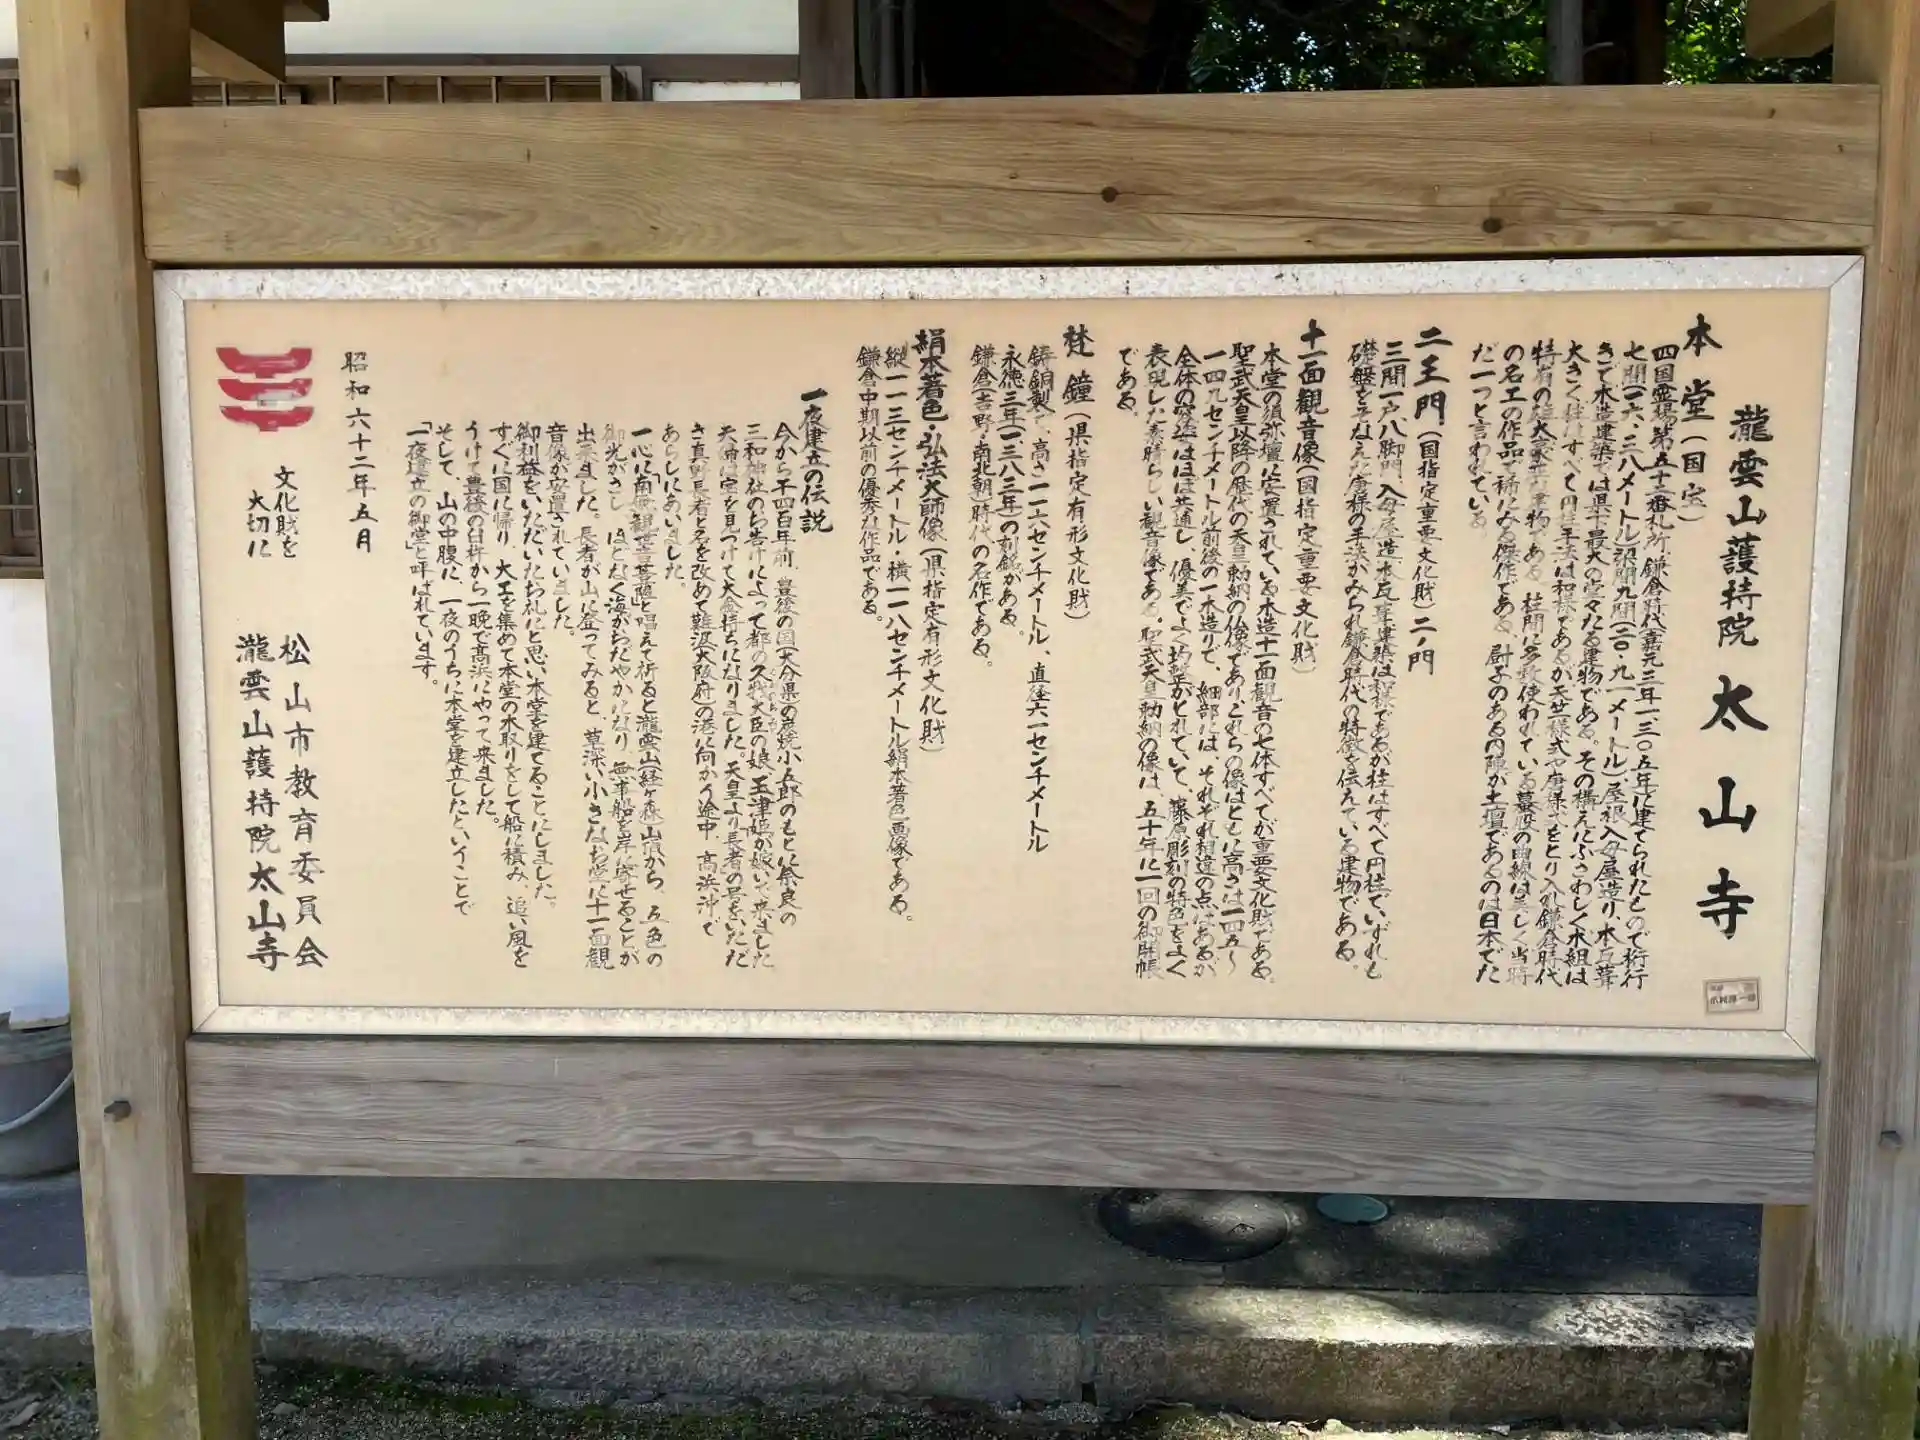 瀧雲山護持院 太山寺
本堂（国宝）
四国霊場第五十二番札所、鎌倉時代（嘉元三年一、三〇五年）に建てられたもので桁行
七間（一六、三八メートル）梁間九間（二〇、九一メートル）、屋根入母屋造り、本瓦葺
きで木造建築では県下最大の堂々たる建物である。その構えにふさわしく木組は
大きく柱はすべて円柱手法は和様であるが天竺様式や唐様式をとり入れ鎌倉時代
特有の雄大豪壮な建物である。柱間に多数使われている蟇股の曲線は美しく当時
の名工の作品で稀にみる傑作である。厨子のある内陣が土壇であるのは日本でた
だ一つと言われている。
二王門（国指定重要文化財）二ノ門
三間一戸、八脚門、入母屋造、本瓦葺建築は和様であるが柱はすべて円柱でいずれも
礎盤をそなえた唐様の手法がみられ鎌倉時代の特徴を伝えている建物である。
十一面観音像（国指定重要文化財）
本堂の須弥壇に安置されている木造十一面観音の七体すべてが重要文化財である。
聖武天皇以降の歴代の天皇勅納の仏像であり、これらの像はともに高さは一四五～
一四九センチメートル前後の一木造りで、細部には、それぞれ相違の点はあるが
全体の容姿はほぼ共通し、優美でよく均整がとれていて、藤原彫刻の特色をよく
表現した素晴らしい観音像である。聖武天皇勅納の像は、五十年に一回の御開帳
である。
梵鐘（県指定有形文化財）
鋳銅製で、高さ一一六センチメートル、直径六一センチメートル
永徳三年（一、三八三年）の刻銘がある。
鎌倉（吉野・南北朝）時代の名作である。
絹本著色・弘法大師像（県指定有形文化財）
縦一一三センチメートル・横一一八センチメートル絹本著色画像である。
鎌倉中期以前の優秀な作品である。
一夜建立の伝説
今から千四百年前、豊後の国（大分県）の炭焼小五郎のもとに奈良の
三和神社のお告げによって都の久我大臣の娘「玉津姫」が嫁いで来ました
夫婦は宝を見つけて大金持ちになりました。天皇より長者の号をいただ
き真野長者と名を改めて難波（大阪府）の港に向かう途中、高浜沖で
あらしにあいました。
一心に「南無観世音菩薩」と唱えて祈ると瀧雲山（経ヶ森）山頂から、五色の
御光がさし ほどなく海がおだやかになり、無事船を岸に寄せることが
出来ました。長者が山に登ってみると、草深い小さなお堂に十一面観
音像が安置されていました。
御利益をいただいたお礼にと思い本堂を建てることにしました。
すぐに国に帰り、大工を集めて本堂の木取りをして船に積み、追い風を
うけて豊後の臼杵から一晩で高浜にやって来ました。
そして、山の中腹に、一夜のうちに本堂を建立したということで
「一夜建立の御堂」と呼ばれています。
昭和六十二年五月
文化財を
大切に
松山市教育委員会
瀧雲山護持院太山寺